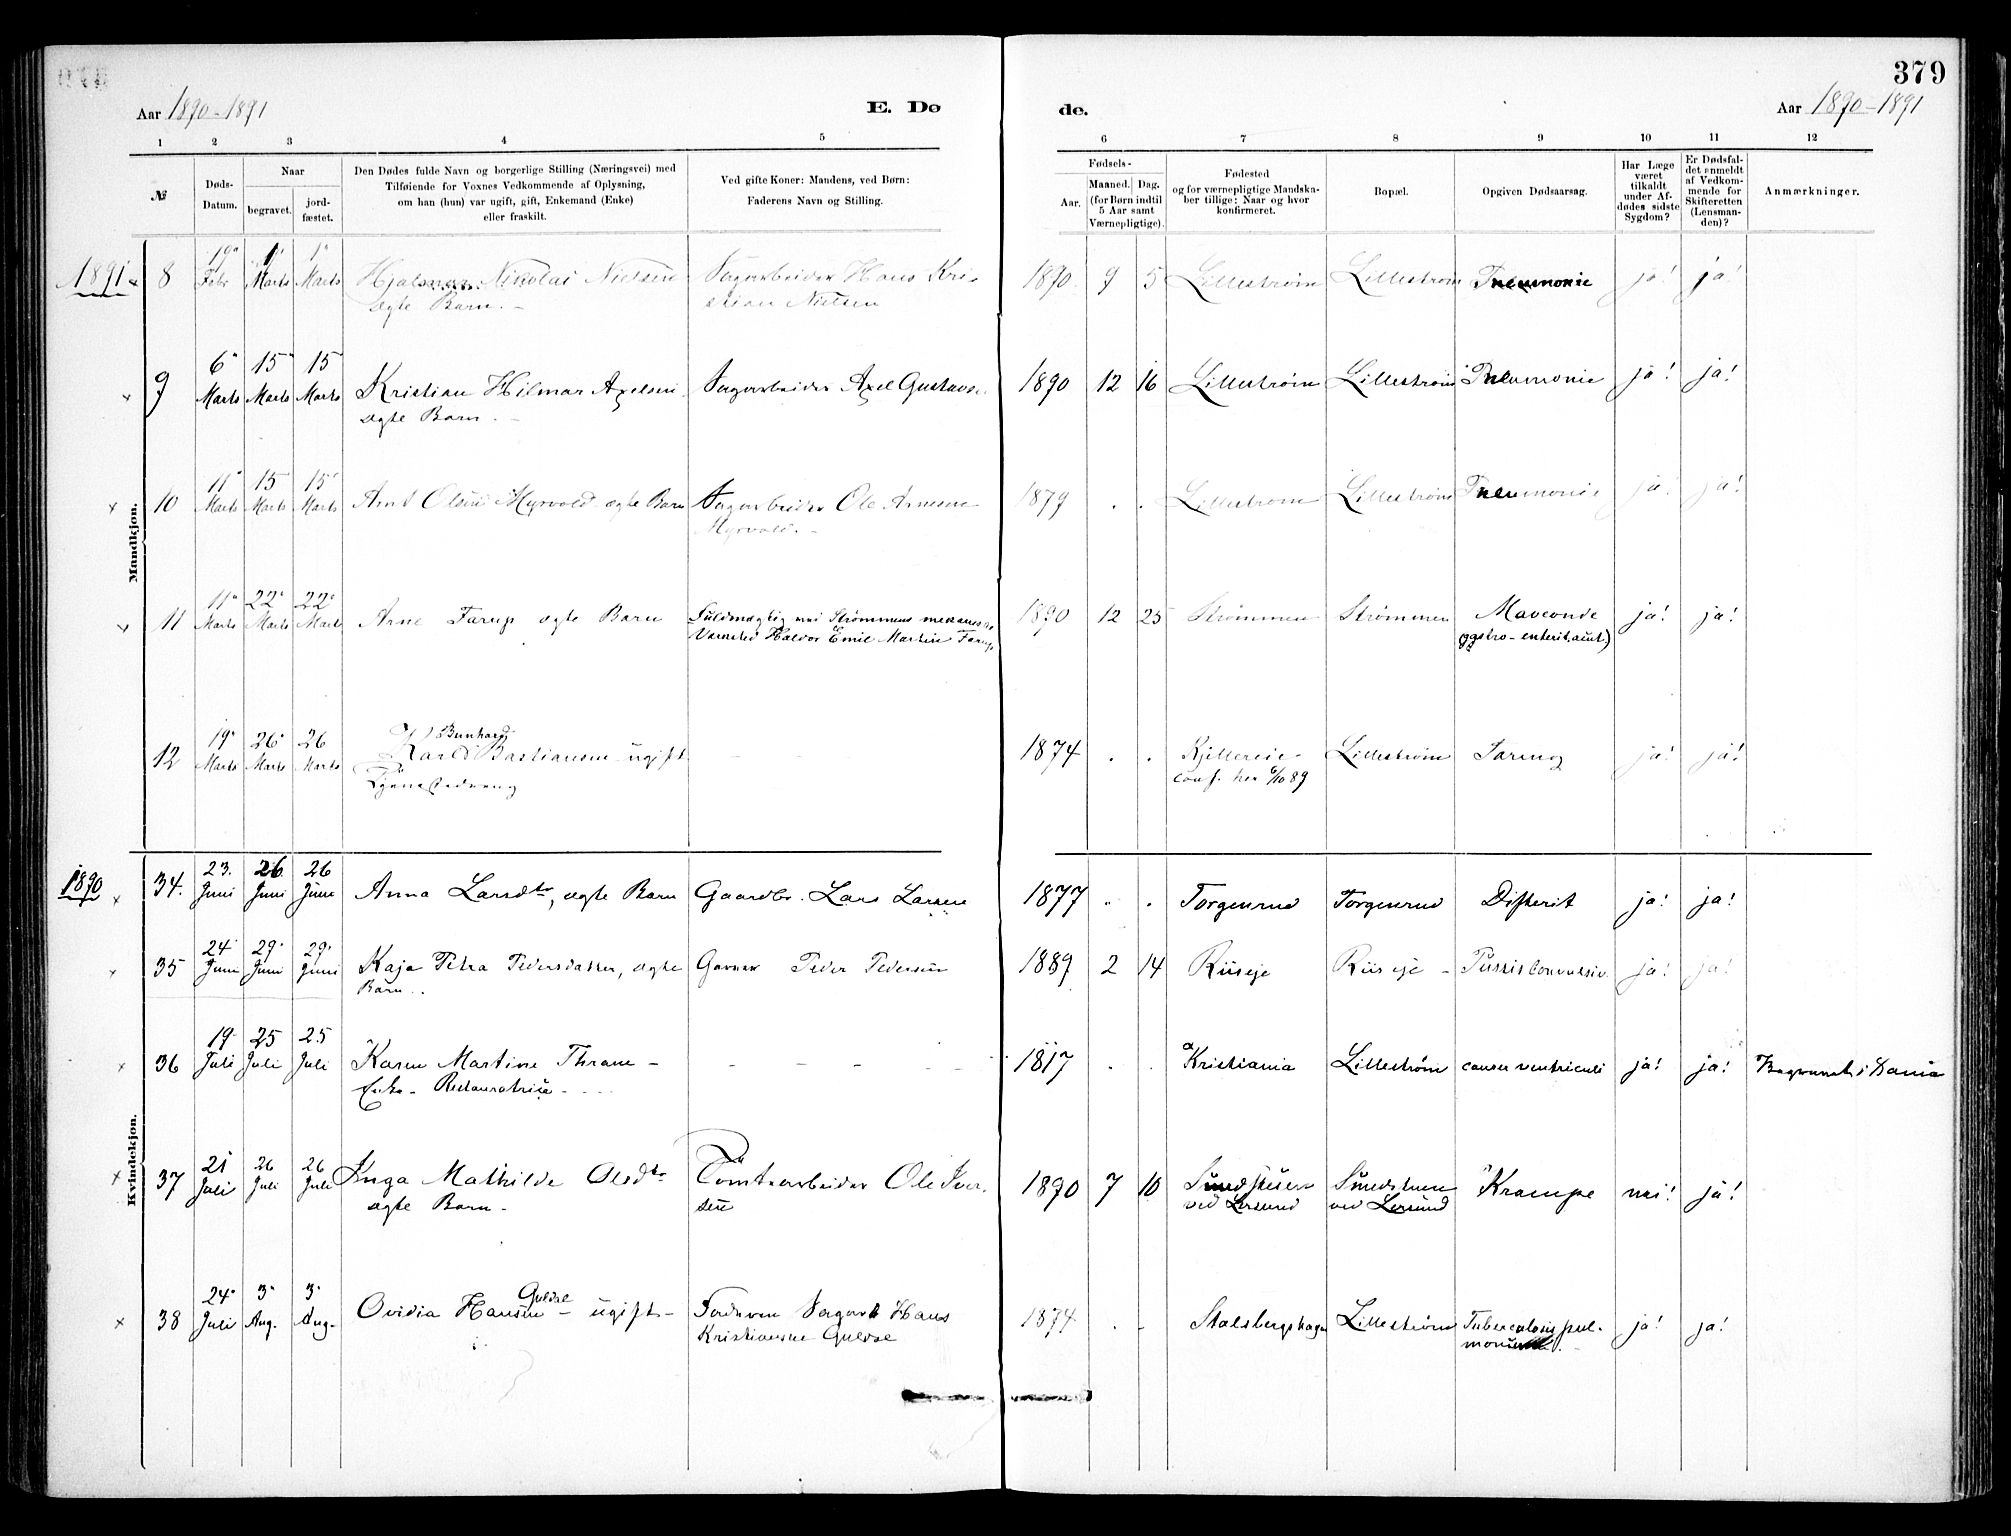 379
Aar 1890-1891 E. Dø de. Aar 1890-1891
1 2 3 4 5 6 7 8 9 10 11 12
№
Døds-
Datum.
Naar
begravet.
jord-
fæstet.
Den Dødes fulde Navn og borgerlige Stilling (Næringsvei) med
Tilføiende for Voxnes Vedkommende af Oplysning,
om han (hun) var ugift, gift, Enkemand (Enke)
eller fraskilt.
Ved gifte Koner: Mandens, ved Børn:
Faderens Navn og Stilling.
Fødsels-
Aar.
Maaned. Dag.
(for Børn indtil
5 Aar samt
Værnepligtige).
Fødested
og for værnepligtige Mandska-
ber tillige: Naar og hvor
konfirmeret.
Bopæl.
Opgiven Dødsaarsag.
Har Læge
været
tilkaldt
under Af-
dødes sidste
Sygdom?
Er Dødsfal-
det anmeldt
af Vedkom-
mende for
Skifteretten
(Lensman-
den)?
Anmærkninger.
Mandkjøn.
1891 8 19 Febr 1 Marts 1 Marts Hjalmar Nikolai Nielsen Sagarbeider Hans Kri- 1890 9 5 Lillestrøm Lillestrøm Pneumonie ja! ja!
ægte Barn. - stian Nielsen
9 6 Marts 15 Marts 15 Marts Kristian Hilmar Axelsen Sagarbeider Axel Gustavs. 1890 12 16 Lillestrøm Lillestrøm Pneumonie ja! ja!
ægte Barn. -
10 11 Marts 15 Marts 15 Marts Arnt Olsen Myrvold ægte Barn Sagarbeider Ole Arnesen 1879 . . Lillestrøm Lillestrøm Pneumonie ja! ja!
Myrvold. -
11 11 Marts 22 Marts 22 Marts Arne Farup ægte Barn Fuldmægtig ved Strømmens mekaniske 1890 12 25 Strømmen Strømmen Maveonde ja! ja!
Værksted Haldor Emil Martin Farup (gastro-enterit. acut.)
12 19 Marts 26 Marts 26 Marts Karl Bernhard Bastiansen ugift - - 1874 . . Lillestrøm Taring ja! ja!
conf. her 6/10 89
Kvindekjøn.
1890 34. 23. Juni 26 Juni 26 Juni Anna Larsdtr, ægte Barn Gaardbr. Lars Larsen 1877 . . Torgenrud Torgenrud Difterit ja! ja!
35 24 Juni 29 Juni 29 Juni Kaja Petra Pedersdatter, ægte Garver Peder Pedersen 1889 2 14 Riiseje Riiseje - Tussis convulsiv. ja! ja!
Barn..
36 19 Juli 25 Juli 25 Juli Karen Martine Thrane - - - - - 1817 . . Kristiania Lillestrøm cancer ventriculi ja! ja! Begravet i Kania
Enke - Restauratrice - - -
37 21 Juli 26 Juli 26 Juli Inga Mathilde Olsdtr Tomtearbeider Ole Iver- 1890 7 10 Sundstuen Sundstuen Krampe nei! ja!
ægte Barn - sen ved Lersund ved Lersund
38 24 Juli 3 Aug. 3 Aug. Ovidia Hansen Guldal - ugift - Faderen Sagarb Hans 1874 . - Stalsberghagen Lillestrøm Tuberculosis pul- ja! ja!
Kristiansen Guldal monum.